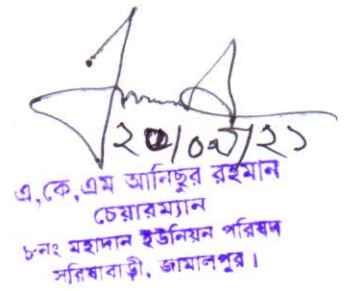 ২০/০৯/২১
এ,কে,এম আনিছুর রহমান
চেয়ারম্যান
৮নং মহাদান ইউনিয়ন পরিষদ
সরিষাবাড়ী, জামালপুর।